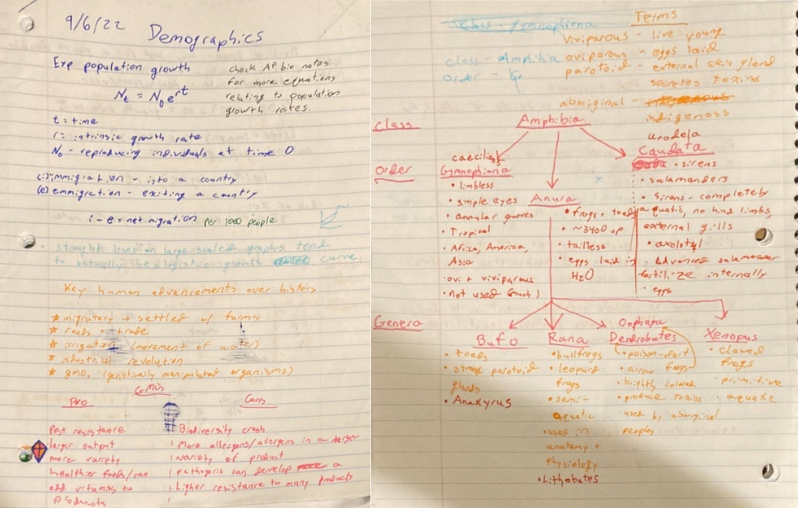 9/6/22 Demographics
Exp population growth
check AP bio notes
for more equations
relating to population
growth rates.
Nt = N0e^rt
t = time
r = intrinsic growth rate
N0 - reproducing individuals at time 0
(i) immigration - into a country
(e) emmigration - exiting a country
i - e = net migration per 1000 people
straight lines on large scaled graphs tend
to actually be logistic growth curve.
Key human advancements over history
* migratory → settled w/ farms
* roads + trade
* irrigation (movement of water)
* industrial revolution
* gmo, (genetically manipulated organisms)
GMOs
Pro
Cons
Pest resistance
larger output
more variety
healthier foods/can
add vitamins to
products
Biodiversity crash
More allergens/allergens in a larger
variety of product
pathogens can develop a
higher resistance to many products
Class - Gymnophiona
class - Amphibia
order -
Terms
viviparous - live young
oviparous - eggs laid
parotoid - external skin gland
secretes toxins
aboriginal -
indigenous
Class
Amphibia
Order
caecilian
Gymnophiona
• limbless
• simple eyes
• annular grooves
• Tropical
• Africa, America,
Asia
• ovi + viviparous
• not used (much)
Anura
• frogs + toads
• ~3400 sp
• tailless
• eggs laid in
H2O
urodela
Caudata
• sirens
• salamanders
• Sirens - completely
aquatic, no hind limbs,
external gills
• axolotyl
• Advanced salamander
fertilize internally
• eggs
Genera
Bufo
• toads
• parotoid
glands
• Anaxyrus
Rana
• bullfrogs
• leopard
frogs
• semi-
aquatic
• used in
anatomy +
physiology
• Lithobates
Oophaga
Dendrobates
• poison-dart
arrow frogs
• brightly colored
• produce toxins
• used by aboriginal
peoples
Xenopus
• clawed
frogs
• primitive
• aquatic